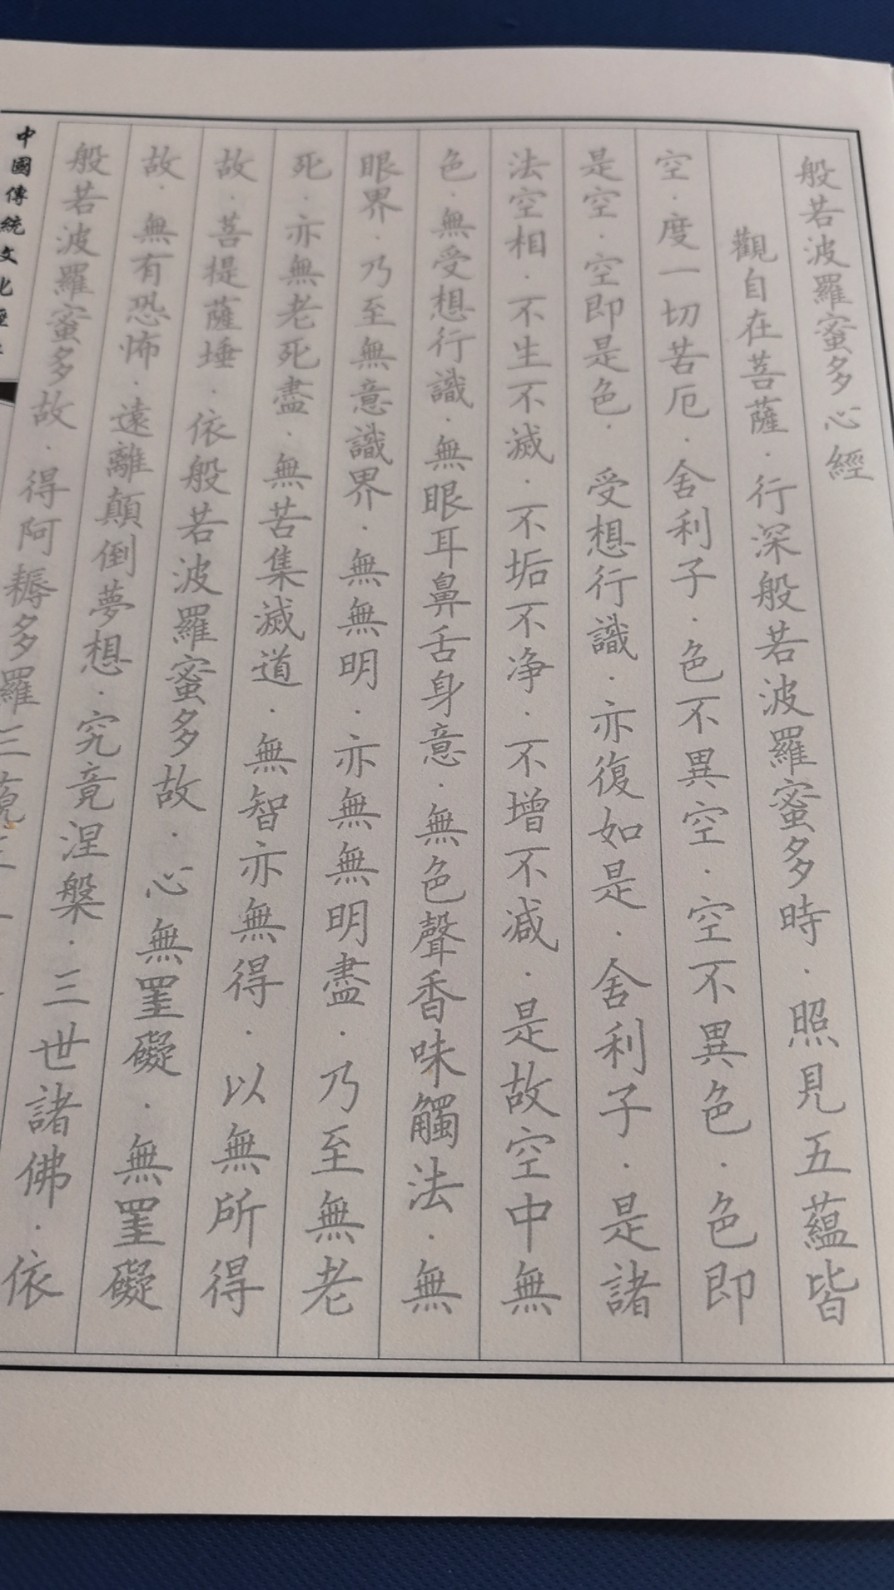 般若波羅蜜多心經
觀自在菩薩·行深般若波羅蜜多時·照見五蘊皆
空·度一切苦厄·舍利子·色不異空·空不異色·色即
是空·空即是色·受想行識·亦復如是·舍利子·是諸
法空相·不生不滅·不垢不净·不增不减·是故空中無
色·無受想行識·無眼耳鼻舌身意·無色聲香味觸法·無
眼界·乃至無意識界·無無明·亦無無明盡·乃至無老
死·亦無老死盡·無苦集滅道·無智亦無得·以無所得
故·菩提薩埵·依般若波羅蜜多故·心無罣礙·無罣礙
故·無有恐怖·遠離顛倒夢想·究竟涅槃·三世諸佛·依
般若波羅蜜多故·得阿耨多羅三藐三
中國傳統文化